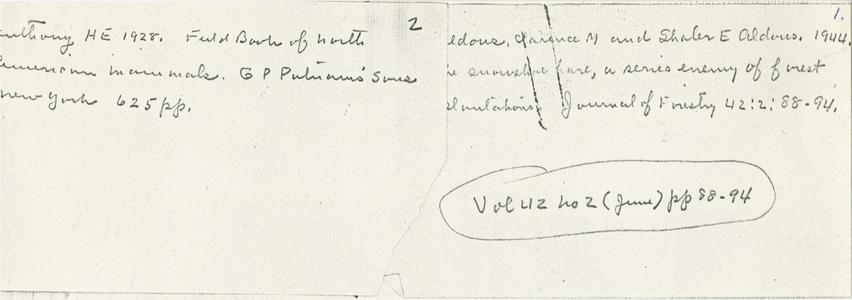 2
Anthony HE 1928. Field Book of North
American mammals. G P Putnam's Sons
New York 625 pp.
1.
Aldous, Clarence M and Shaler E Aldous. 1944.
The snowshoe hare, a series enemy of forest
plantations. Journal of Forestry 42:2:88-94.
Vol 42 no 2 (June) pp 88-94